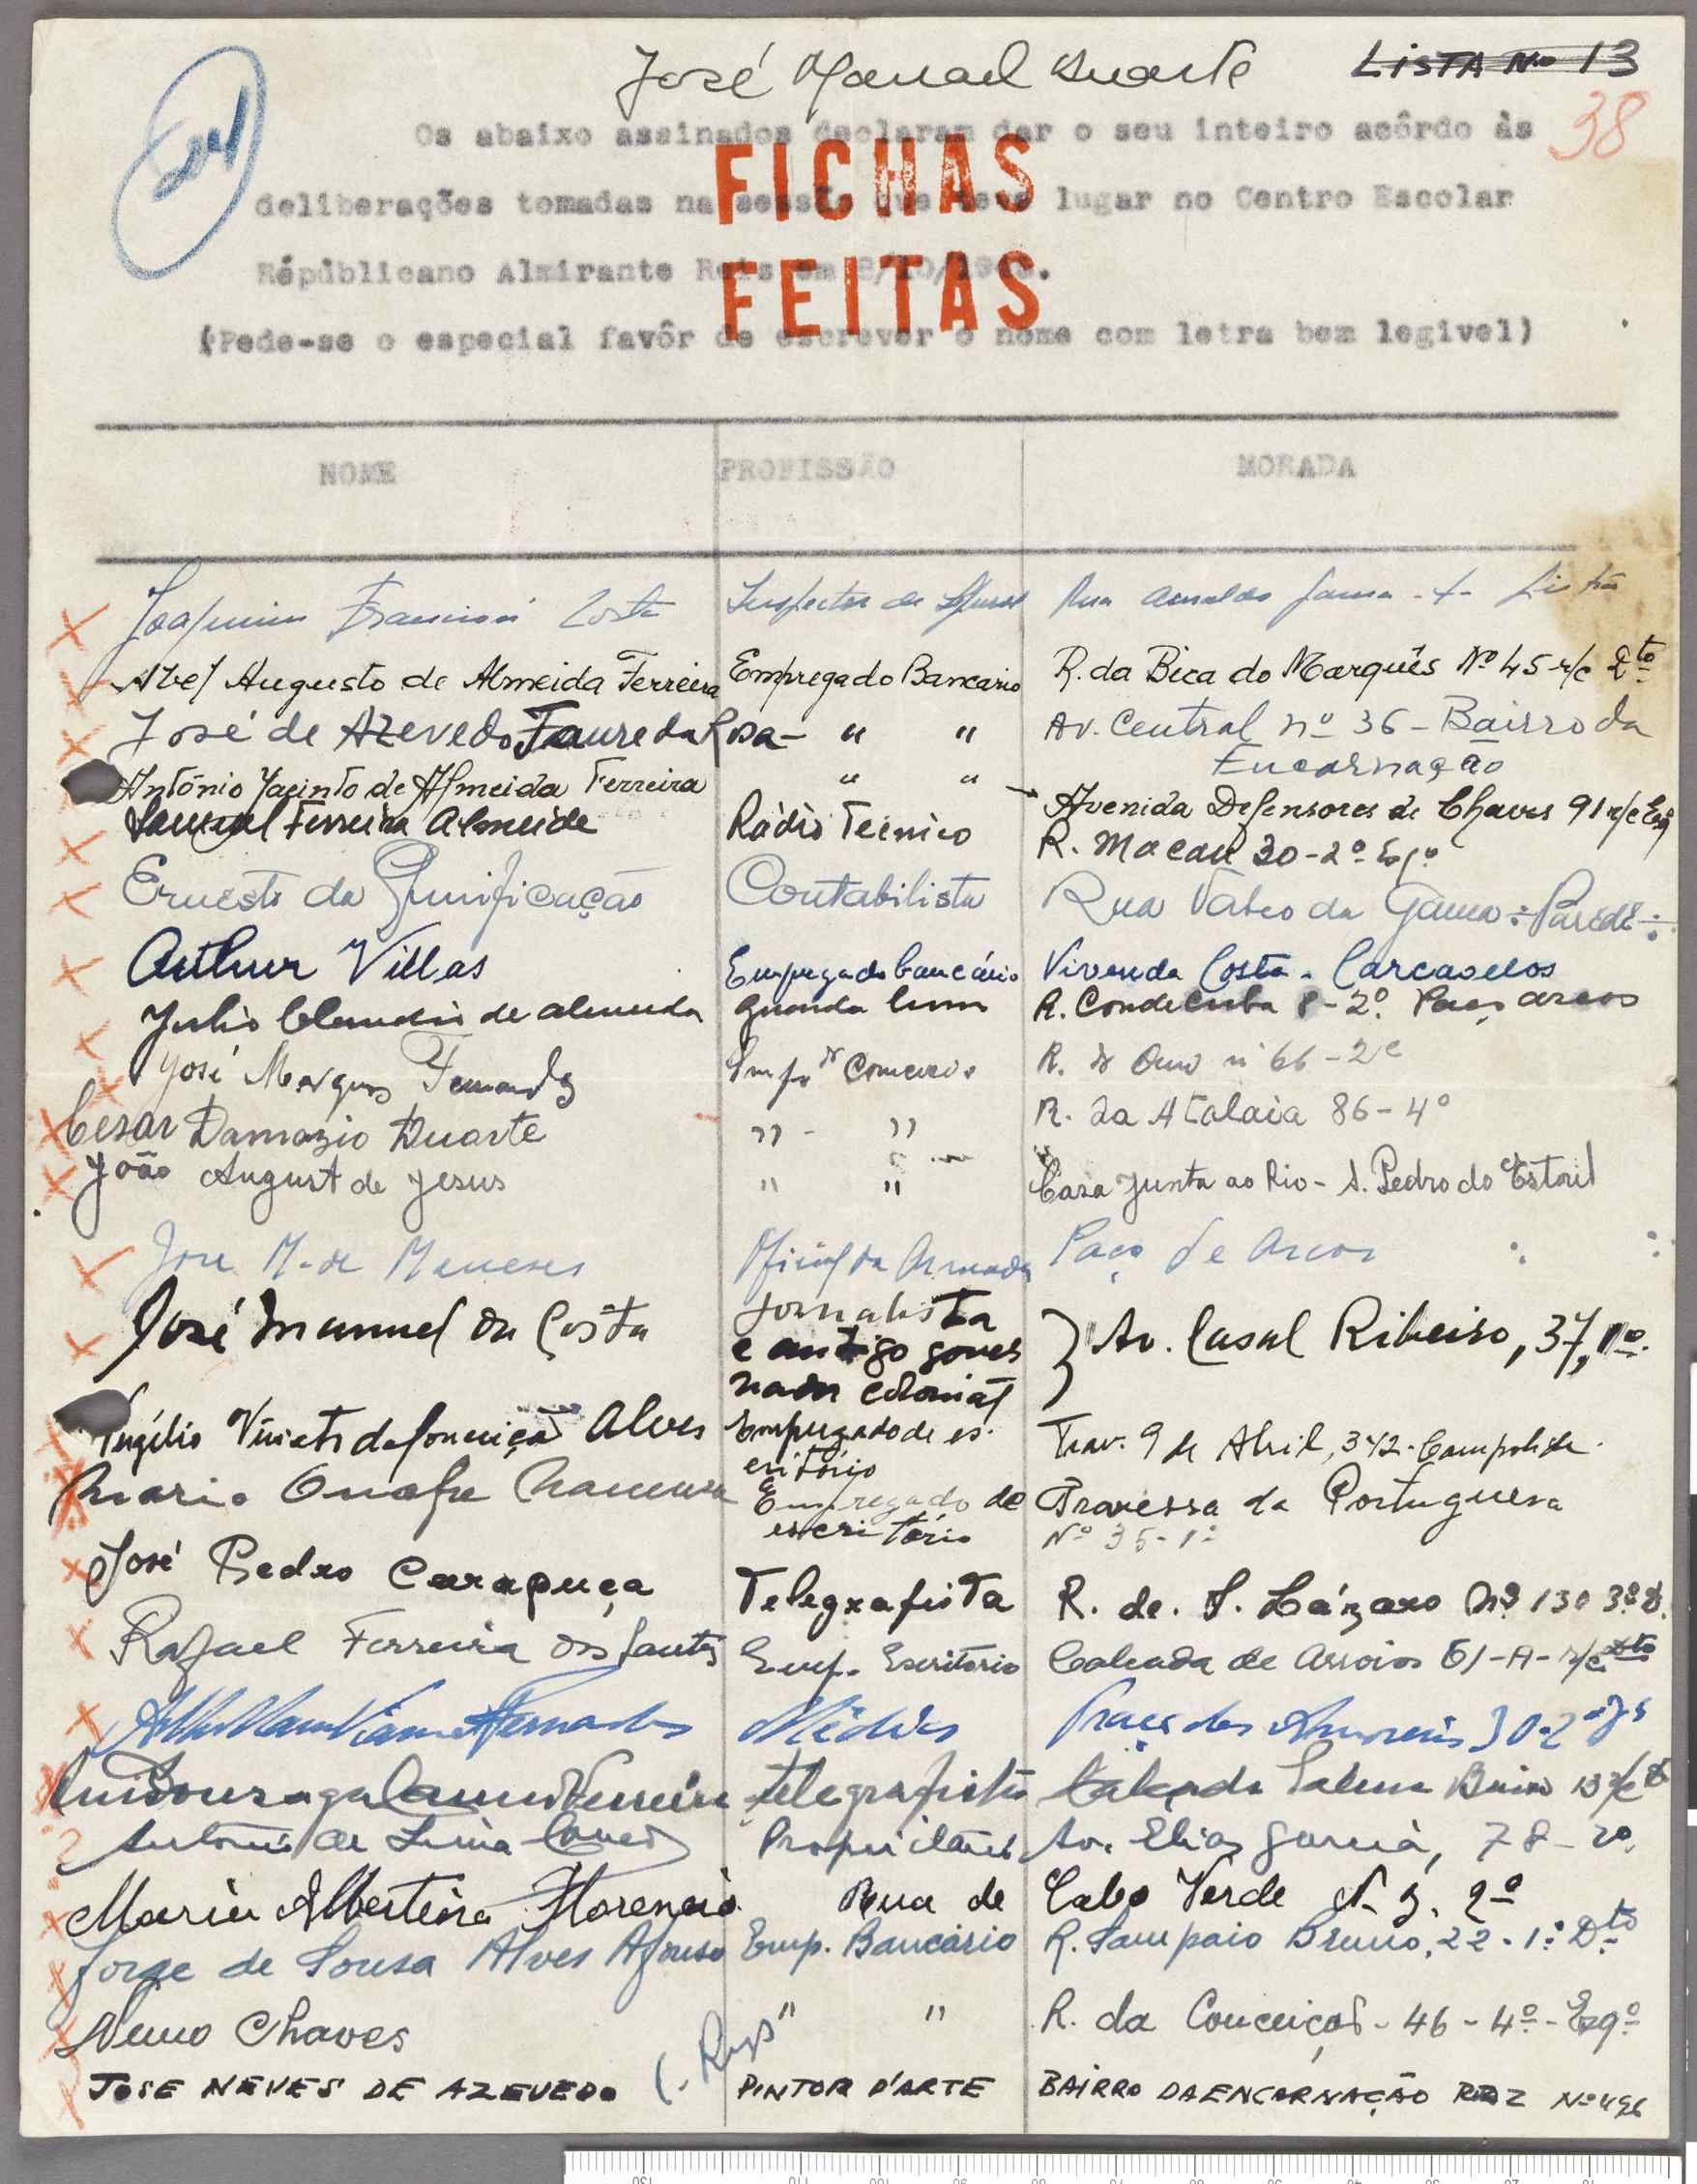 José Manuel Duarte LISTA Nº 13
38
Os abaixo assinados declaram dar o seu inteiro acôrdo às
FICHAS
deliberações tomadas na sessão que teve lugar no Centro Escolar
Républicano Almirante Reis em 8/10/19
FEITAS
(Pede-se o especial favôr de escrever o nome com letra bem legivel)
NOME PROFISSÃO MORADA
Joaquim Costa Inspector de Rua Arnaldo Gama
Abel Augusto de Almeida Ferreira Empregado Bancario R. da Bica do Marquês Nº 45 r/c Dto
José de Azevedo Faure da Rosa - " " Av. Central nº 36 - Bairro da
Encarnação
António Jacinto de Almeida Ferreira " " Avenida Defensores de Chaves 91 r/c Esq
Ferreira Almeida Rádio Tecnico R. Macau 30-2º Esqº
Ernesto da Purificação Contabilista Rua Vasco da Gama ÷ Parede ÷
Arthur Villas Empregado bancário Vivenda Costa - Carcavelos
Julio Claudio de almeida Guarda livros R. Conde 8-2º Paço arcos
José Marques Fernandes Empº Comercio R. do Ouro nº 66-2º
Cesar Damazio Duarte " - " R. da Atalaia 86-4º
João August de Jesus " " Casa Junta ao Rio - S. Pedro do Estoril
José M. de Meneses Oficial da Armada Paço de Arcos
José Manuel da Costa Jornalista
e antigo gover
nador colonial
Av. Casal Ribeiro, 37, 1º.
Virgílio da Conceição Alves Empregado de es-
critório
Trav. 9 de Abril, 342 - Campolide.
Mario Onofre Empregado de
escritório
Travessa da Portuguesa
Nº 35-1º
José Pedro Carapuça Telegrafista R. de. S. Lázaro Nº 130 3º D.
Rafael Ferreira dos Santos Emp. Escritorio Calçada de Arroios 61-A-r/c Dto
Fernandes Médico Praça das Amoreiras 30-2º
Luis Gonzaga Ferreira telegrafista Calçada
Antonio de Lima Proprietário Av. Elias Garcia, 78-2º.
Maria Albertina Florencio Rua de Cabo Verde N. 5. 2º
Jorge de Sousa Alves Afonso Emp. Bancário R. Sampaio Bruno, 22-1º Dto
Nuno Chaves " " R. da Conceição - 46-4º - Esqº
JOSE NEVES DE AZEVEDO PINTOR D'ARTE BAIRRO DA ENCARNAÇÃO Nº 496